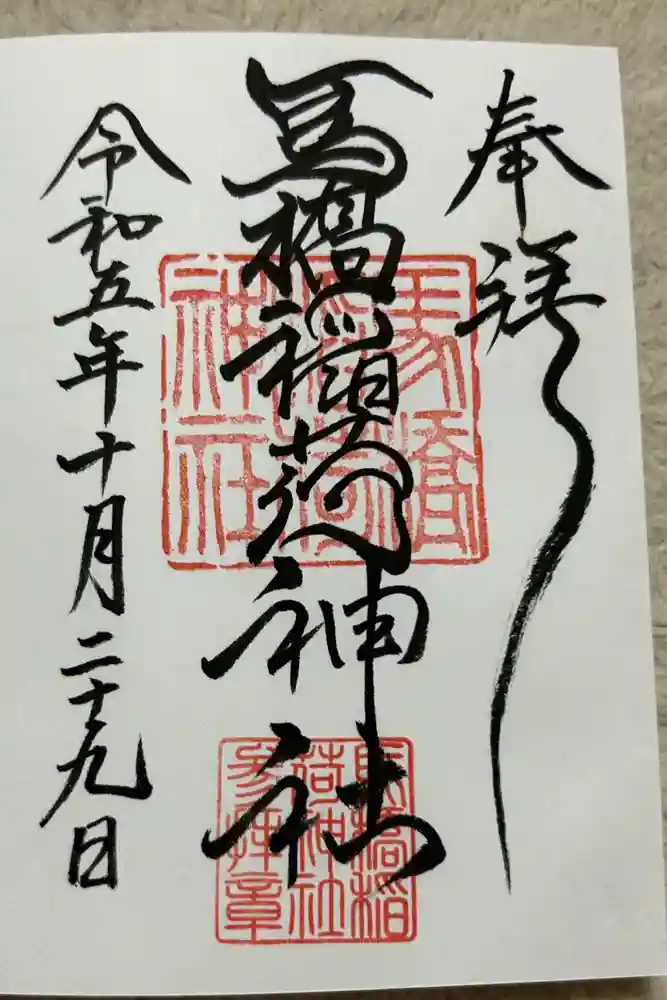 奉拝
馬橋稲荷神社
令和五年十月二十九日
馬橋
稲荷
神社
馬橋稲
荷神社
参拝章